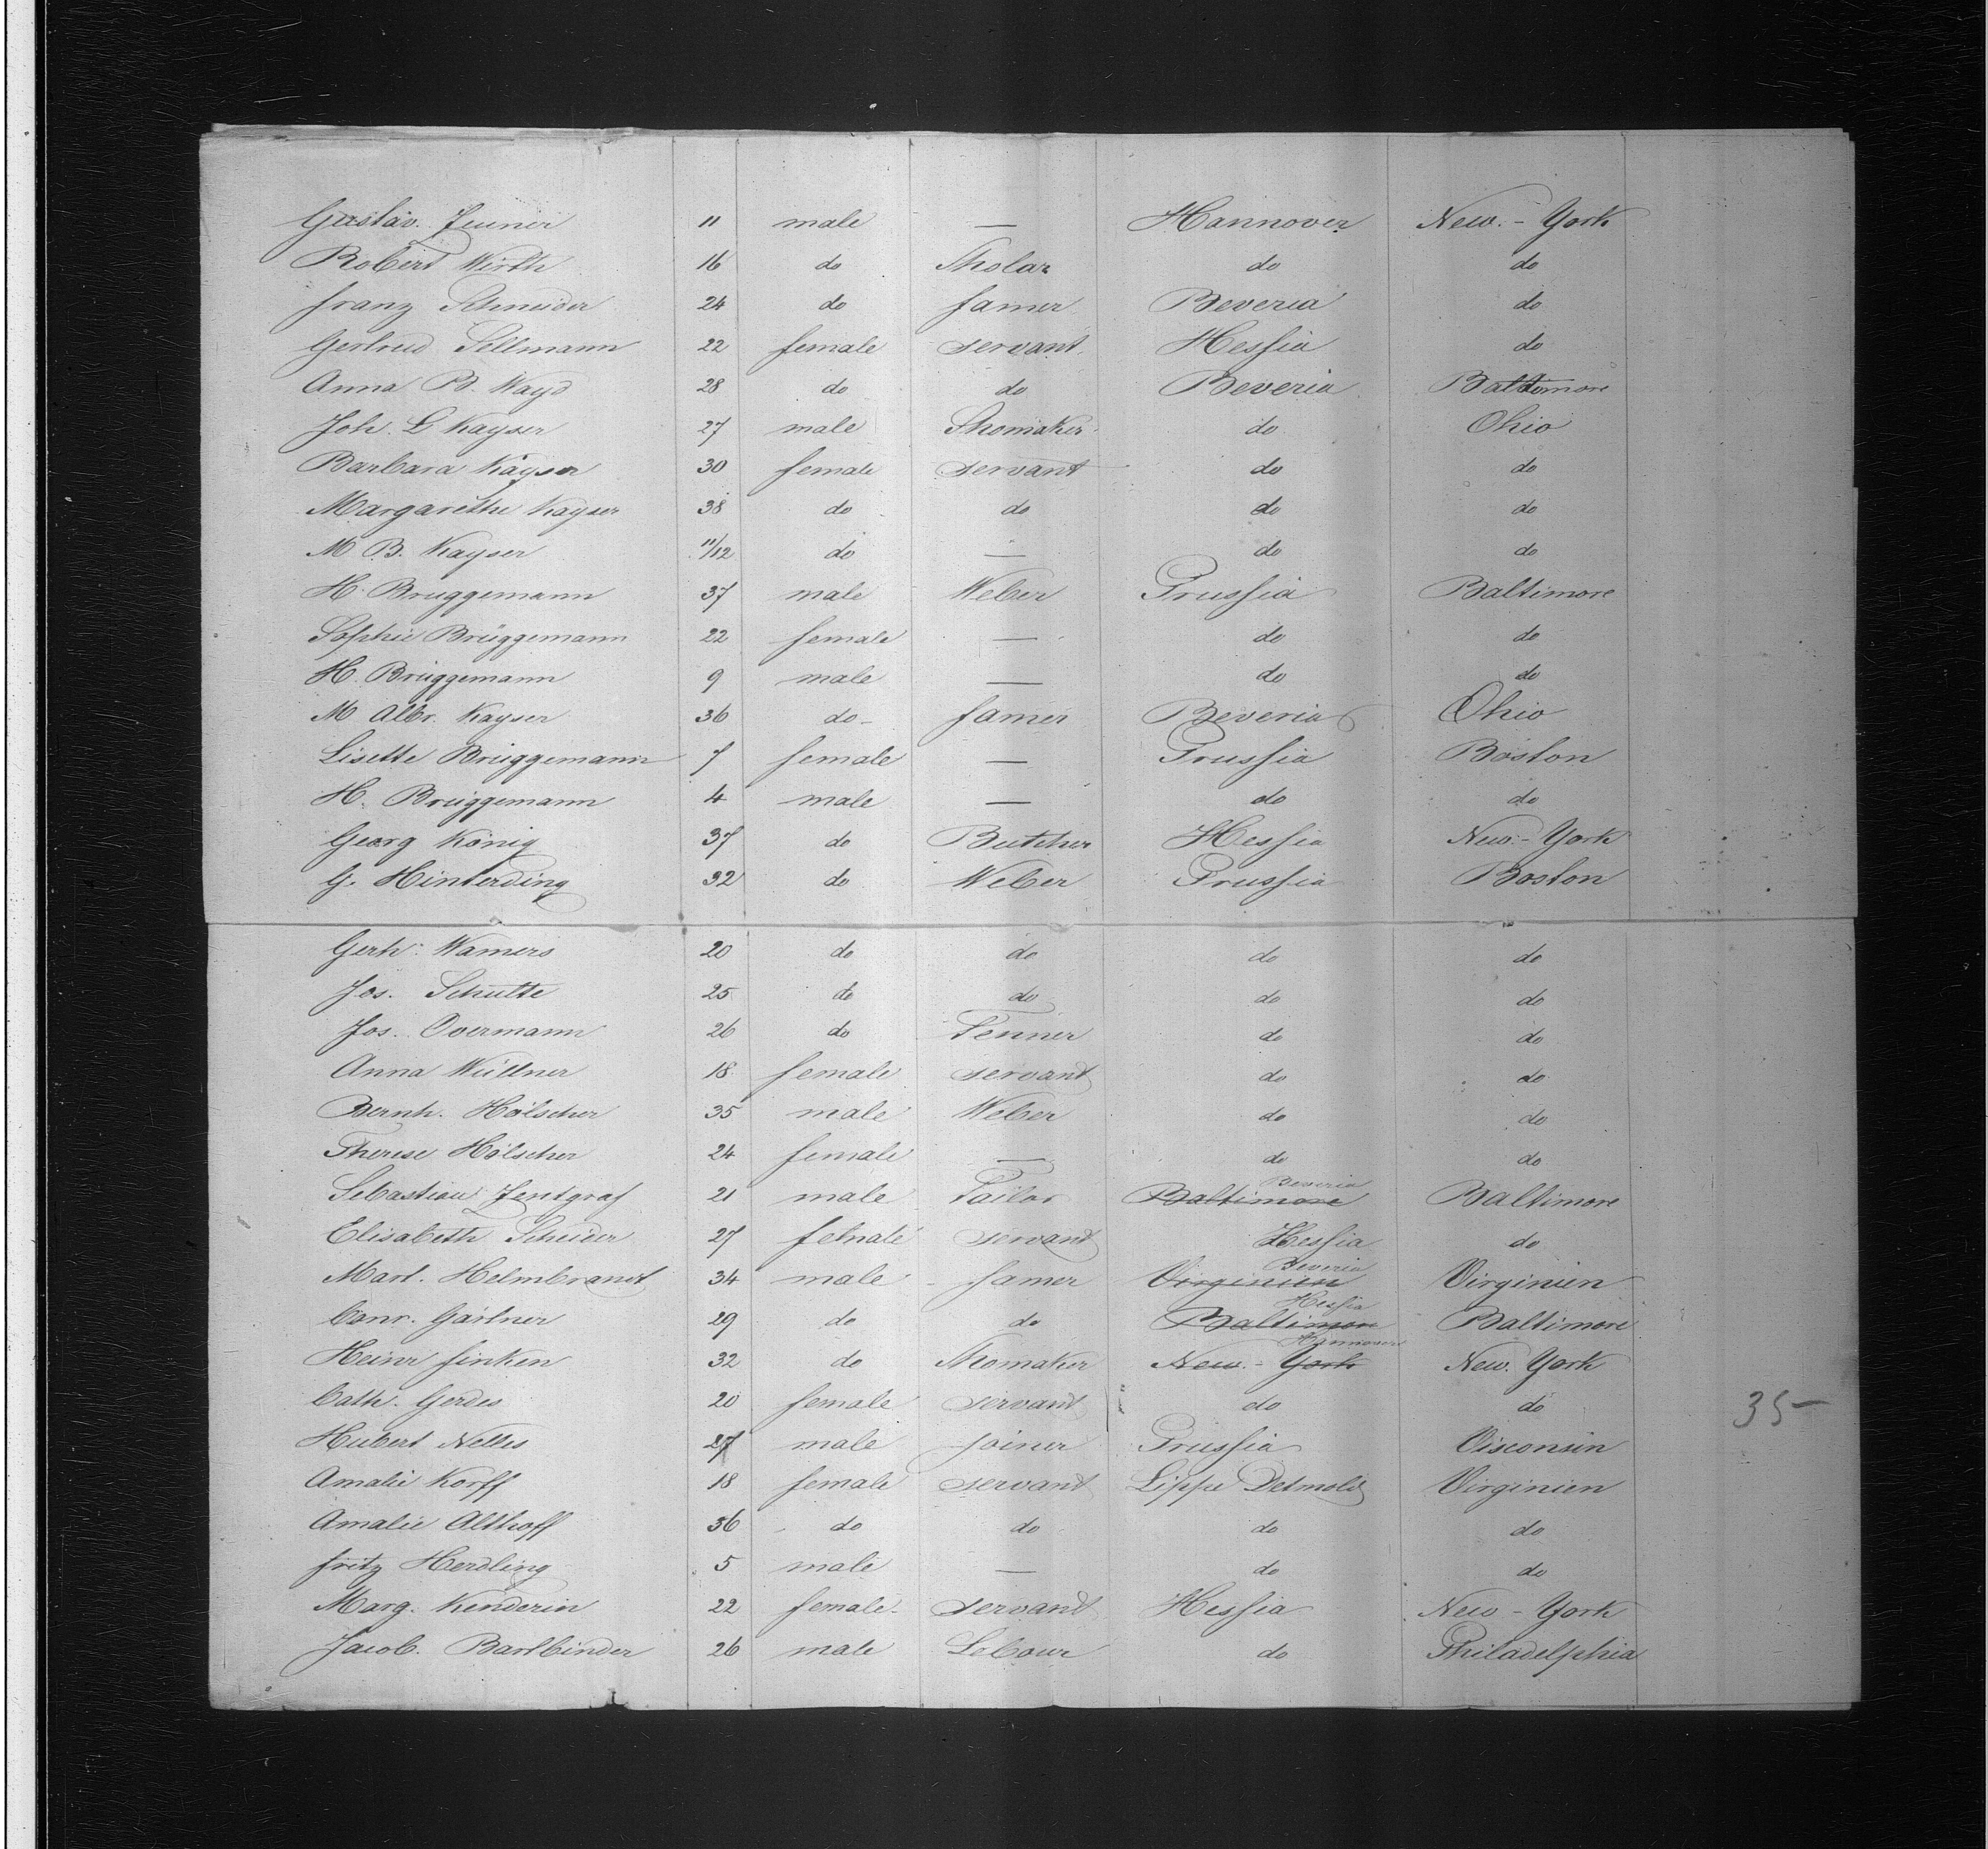 Gustav. Jeunier 11 male — Hannover New.-York
Robert Wirth 16 do Sholar do do
Franz Schneider 24 do famer Beveria do
Gertrud Sellmann 22 female servant Hessia do
Anna B. Wayd 28 do do Beveria Baltimore
Joh. L Kayser 27 male Shomaker do Ohio
Barbara Kayser 30 female servant do do
Margarethe Kayser 38 do do do do
M B. Kayser 11/12 do — do do
H. Bruggemann 37 male Weber Prussia Baltimore
Sophie Brüggemann 22 female — do do
H. Brüggemann 9 male — do do
M Albr. Kayser 36 do famer Beveria Ohio
Lisette Brüggemann 7 female — Prussia Boston
H. Brüggemann 4 male — do do
Georg König 37 do Butcher Hessia New-York
G. Hinterding 32 do Weber Prussia Boston
Gerh. Wamers 20 do do do do
Jos. Schulte 25 do do do do
Jos. Overmann 26 do Tenners do do
Anna Wüllner 18 female servant do do
Bernh. Hölscher 35 male Weber do do
Therese Hölscher 24 female — do do
Beveria
Sebastian Jentgraf 21 male Tailor Baltimore Baltimore
Elisabeth Scheider 27 female servant Hessia do
Beveria
Mart. Helmbrandt 34 male famer Virginien Virginien
Hessia
Conr. Gärtner 29 do do Baltimore Baltimore
Hannover
Heinr finken 32 do Shomaker New.-York New. York
Cath. Gerdes 20 female servant do do
35-
Hubert Nelles 27 male joiner Prussia Visconsin
Amalie Korff 18 female servant Lippe Detmold Virginien
Amalie Althoff 36 do do do do
fritz Herdling 5 male — do do
Marg. Kenderin 22 female servant Hessia New-York
Jacob. Bartbinder 26 male Lebour do Philadelphia